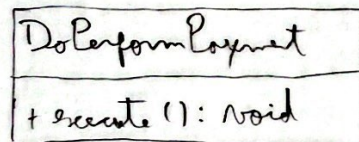 DoPerformPayment
+ execute (): void